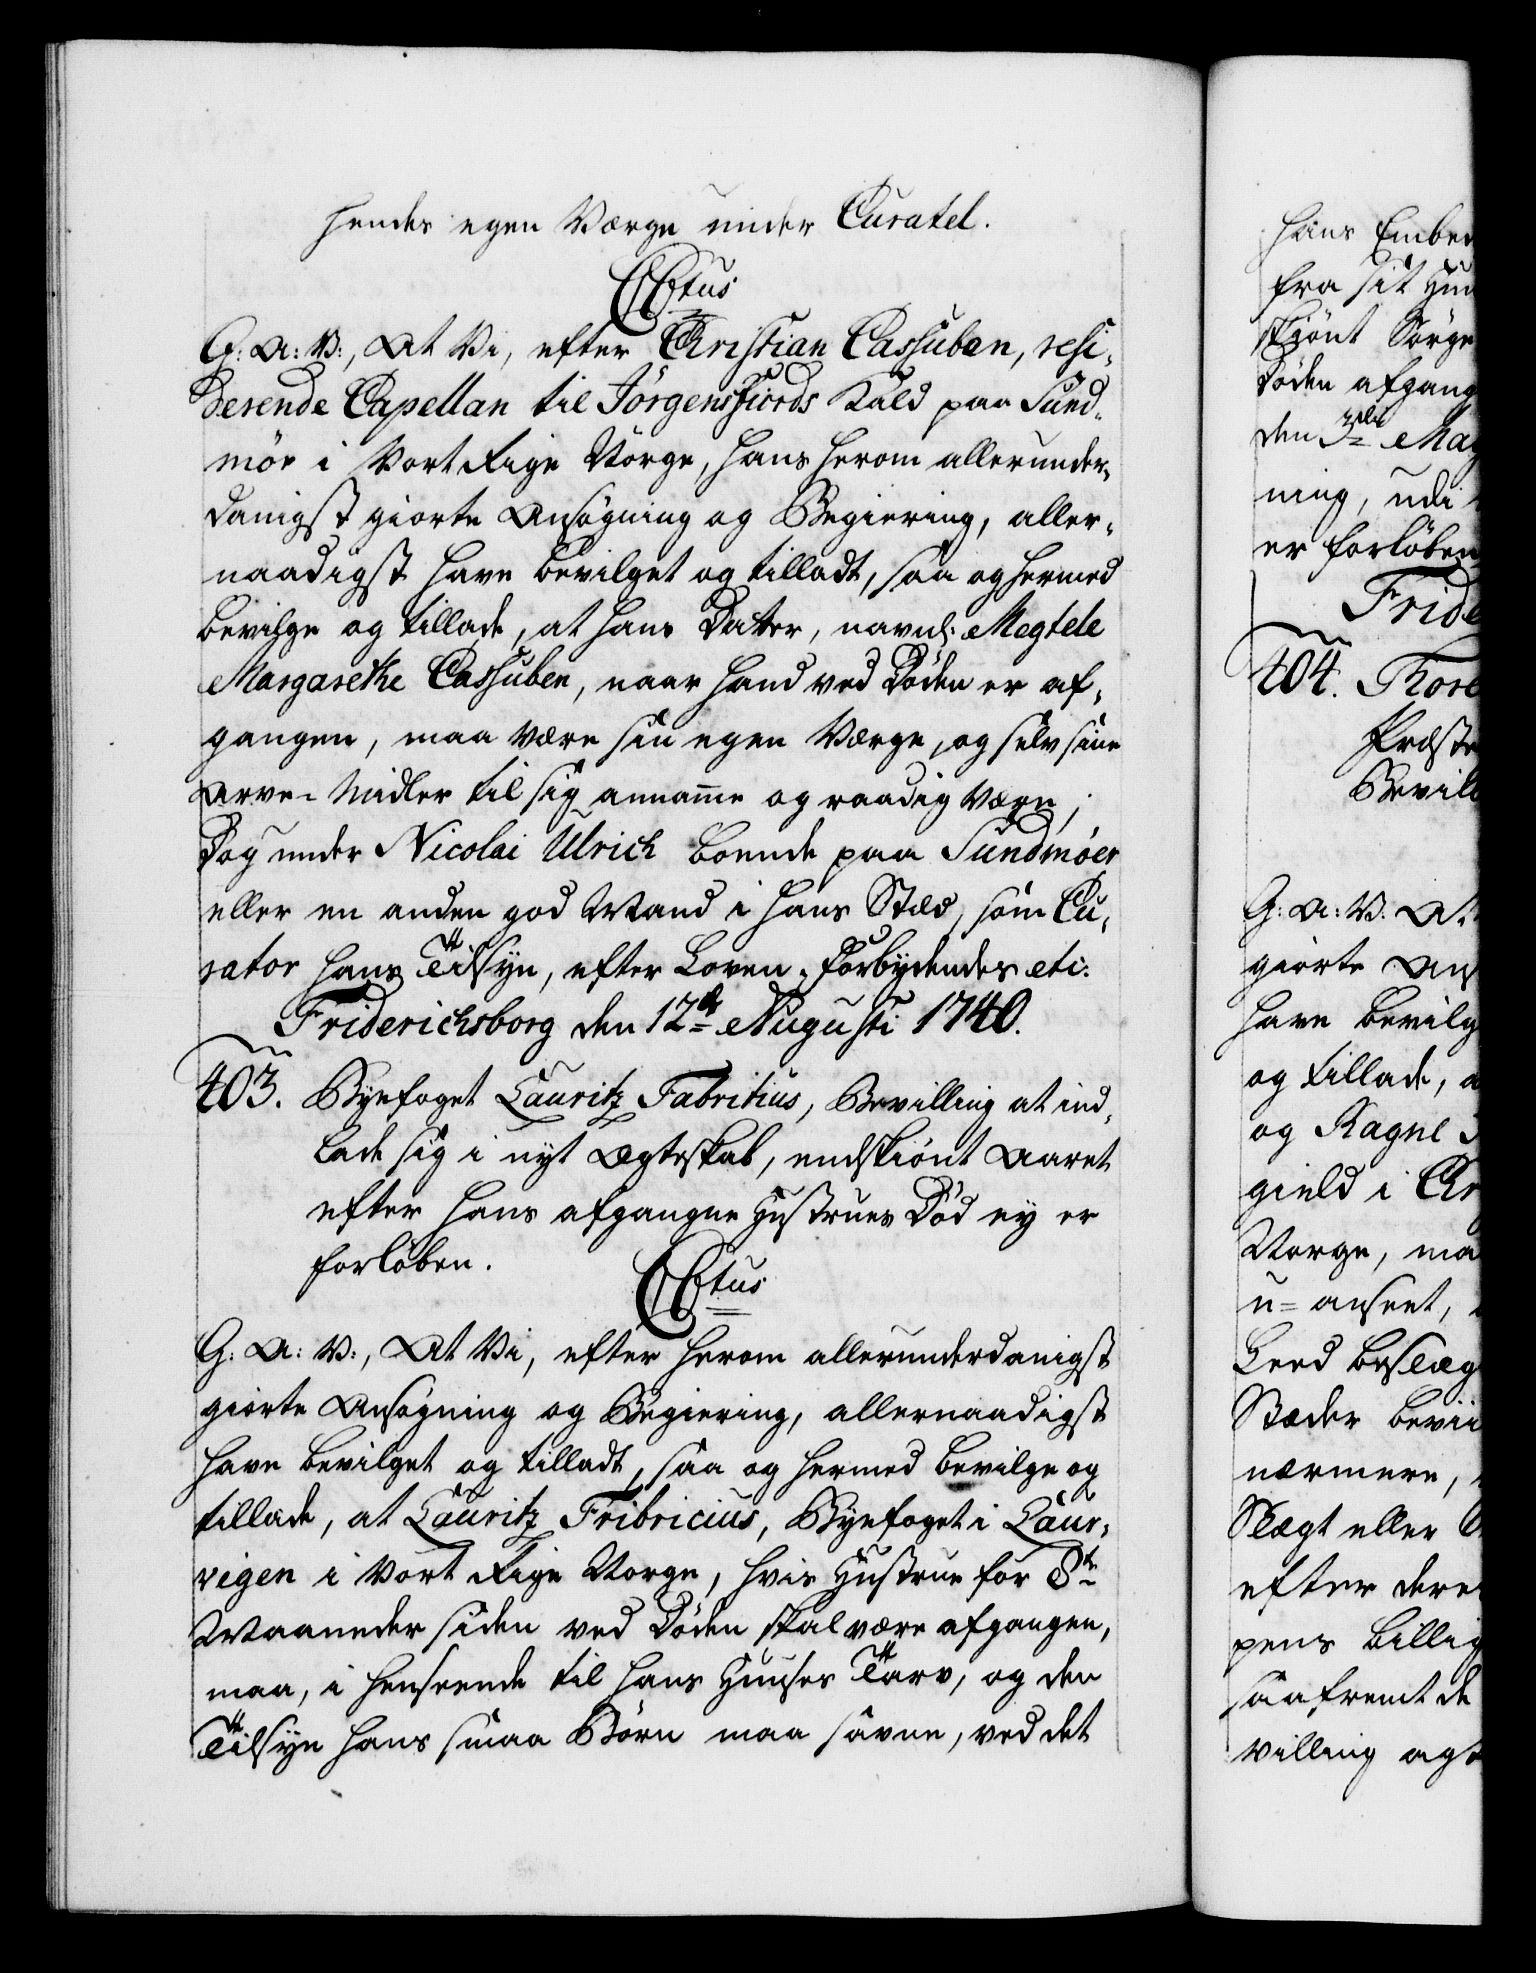 hendes egen Værge under Curatel.
CCtus
G: A: V:, At Vi, efter Christian Cassuben, resi-
derende Capellan til Jörgensfiords Kald paa Sund-
mör i Vort Rige Norge, hans herom allerunder-
danigst giorte Ansögning og Begiering, aller-
naadigst have bevilget og tilladt, saa og hermed
bevilge og tillade, at hans Datter, navnl: Megtele
Margarethe Cassuben, naar hand ved Döden er af-
gangen, maa være sin egen Værge, og selv sine
Arve-Midler til sig annamme og raadig være,
Dog under Nicolai Ulrich boende paa Sundmöer
eller en anden god Mand i hans Stæd, som Cu-
rator hans Tilsyn, efter Loven. Forbydendes etc:
Friderichsborg den 12te Augusti 1740.
403. Byefoget Lauritz Fabritius, Bevilling at ind-
lade sig i nyt Ægteskab, endskiönt Aaret
efter hans afgangne Hustrues Död ey er
forlöben.
CCtus
G: A: V:, At Vi, efter herom allerunderdanigst
giorte Ansögning og Begiering, allernaadigst
have bevilget og tilladt, saa og hermed bevilge og
tillade, at Lauritz Fribricius, Byefoget i Laur-
vigen i Vort Rige Norge, hvis Hustrue for 8te
Maaneder siden ved Döden skal være afgangen,
maa, i henseende til hans Huuses Tarv, og den
Tilsyn hans smaa Börn maa savne, ved det
hans Embe
fra sit Huu
skiönt Sörge
Döden afgang
den 3die May
ning, udi
er forlöben
Fride
404. Thore
Præste
Bevill
G: A: V: At
giorte Ans
have bevilg
og tillade, a
og Ragne
gield i Chr
Norge, ma
u-anseet,
Leed beslæg
Stæder bevii
nærmere,
Slægt eller
efter dere
pens billig
saafremt de
villing agt